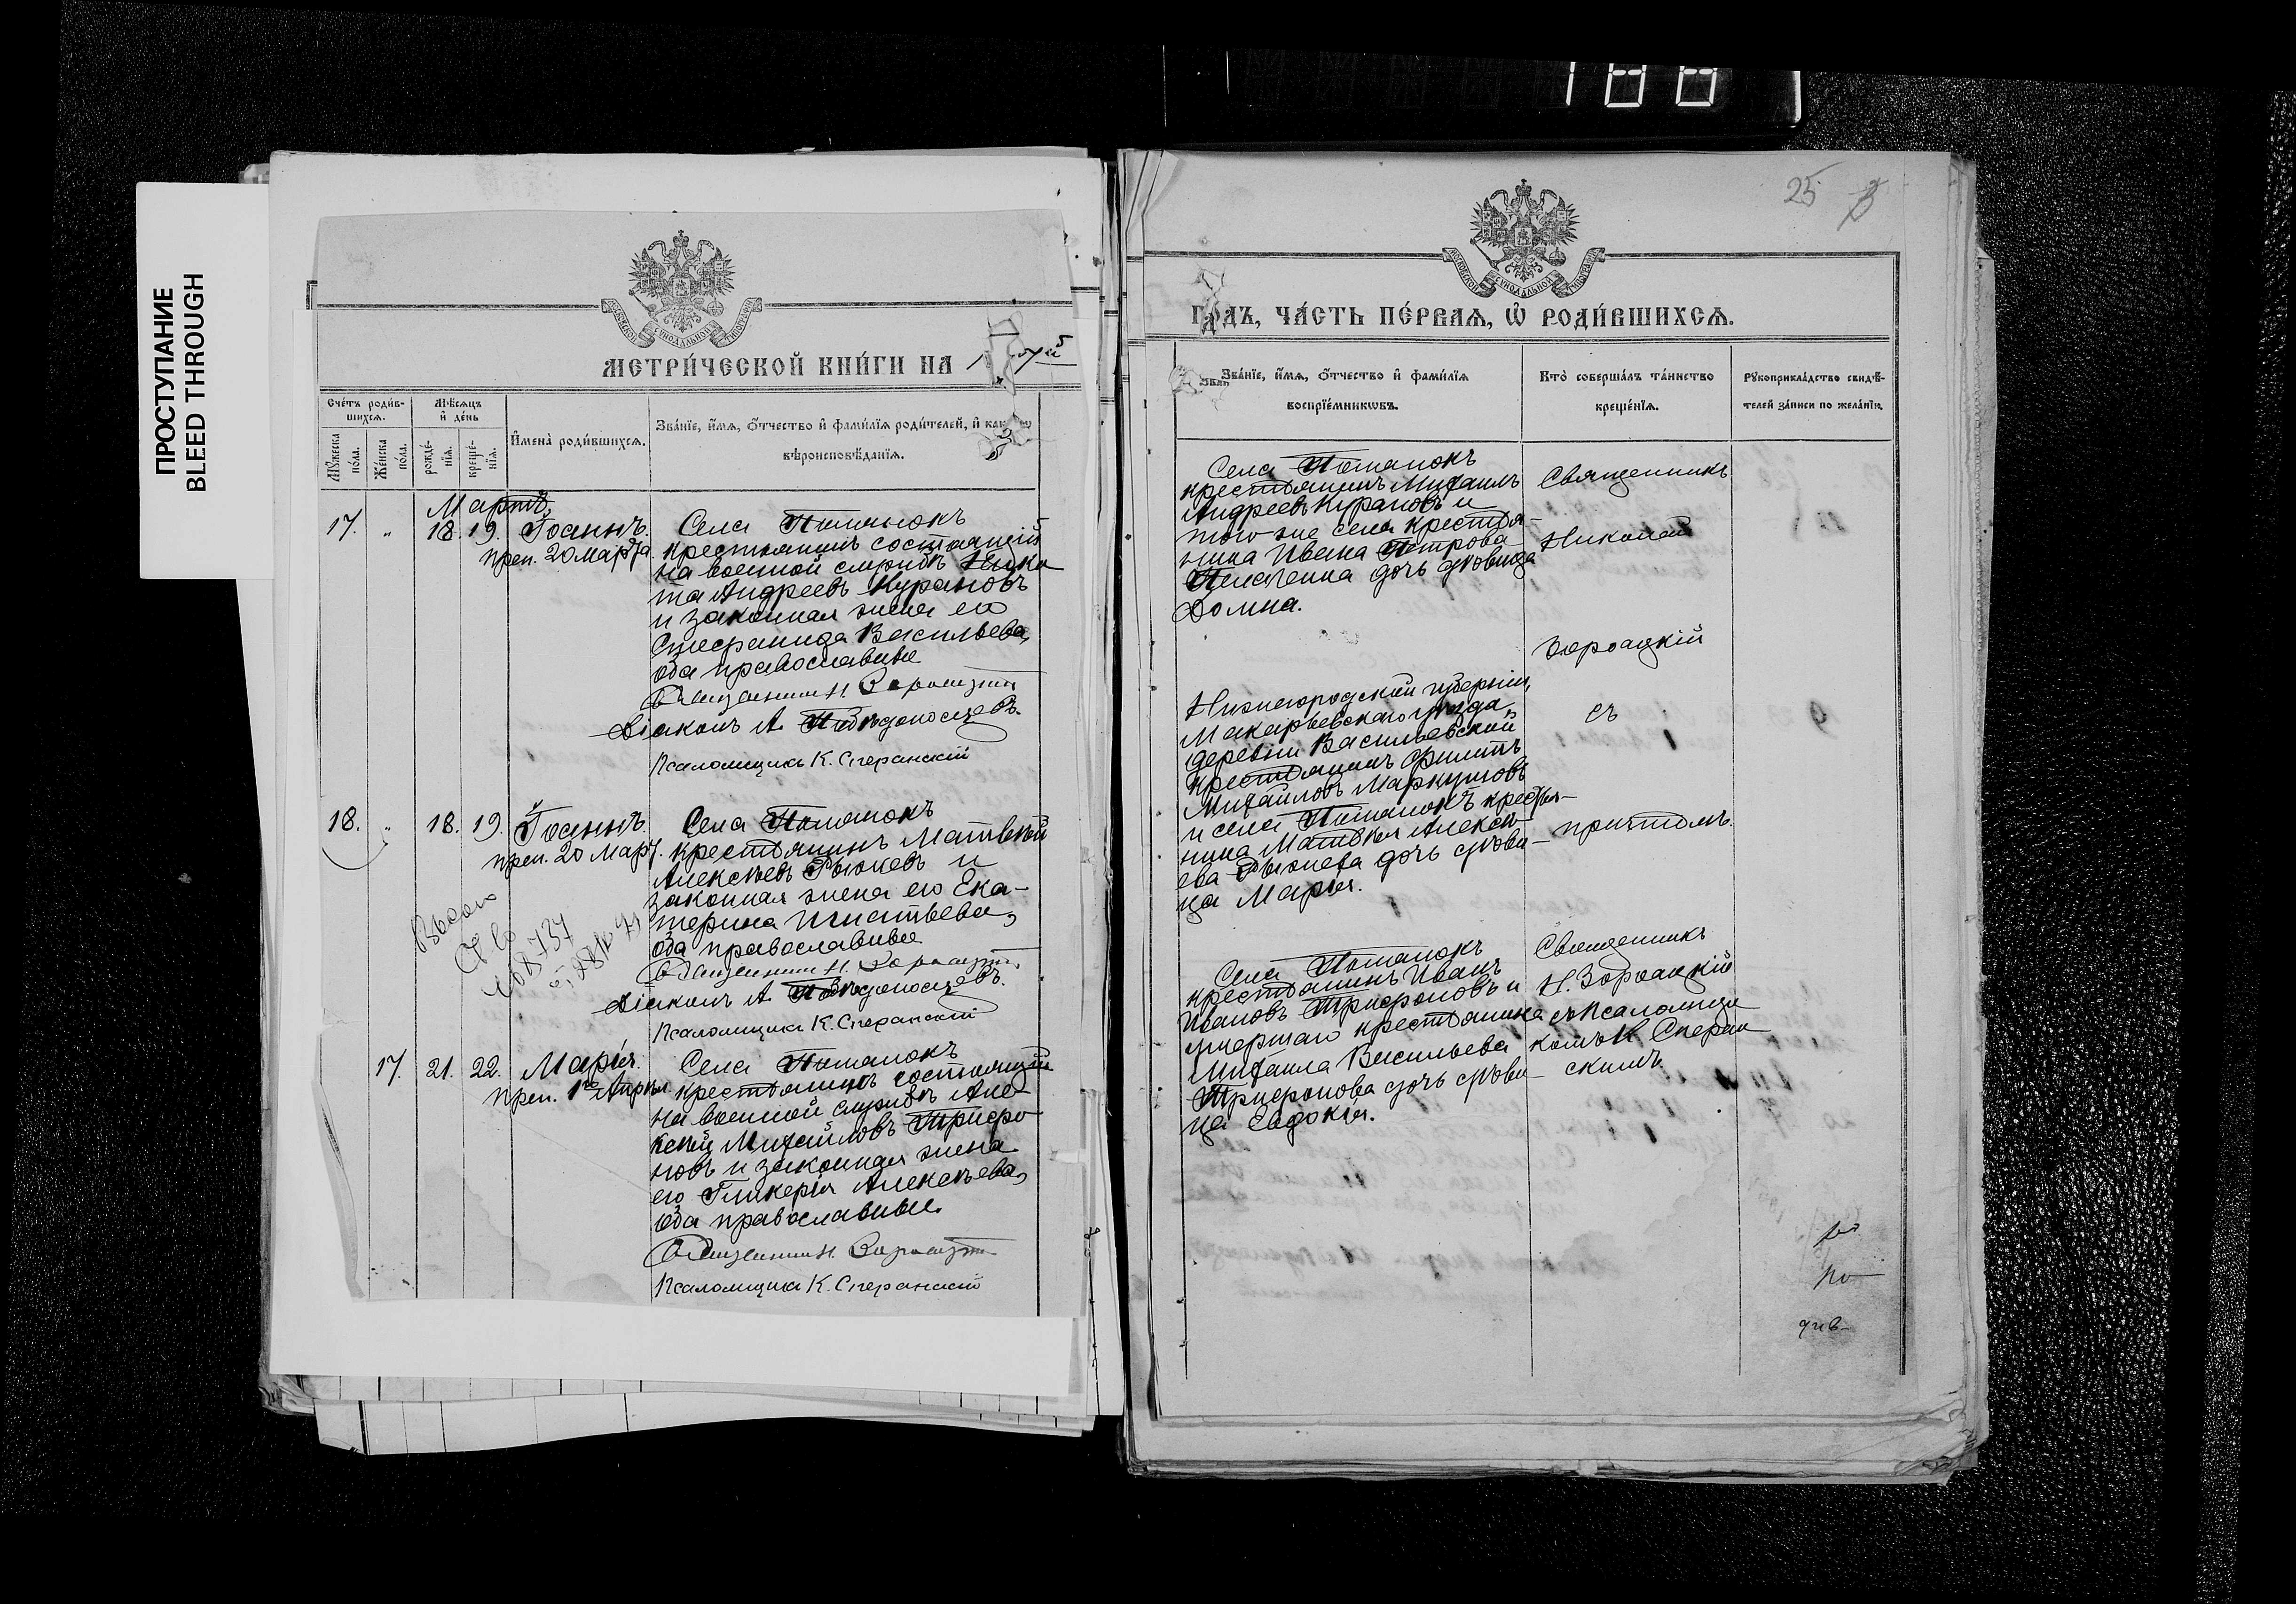 188
ПРОСТУПАНИЕ
BLEED THROUGH
25
МЕТРИ́ЧЕСКОЙ КНИ́ГИ НА
Сче́тъ роди́в-
шихся.
Мѣ́сяцъ
и҆ де́нь
Му́жеска по́ла.
Же́нска по́ла.
рожде́-нїя.
креще́-нїя.
И҆мена̀ роди́вшихся.
Зва́нїе, и҆́мя, ѻ҆́тчество и҆ фами́лїя роди́телей, и҆
вѣроисповѣ́данїя.
Мартъ.
17. „ 18. 19. Іоаннъ.
преп. 20 марта
Села Потанокъ
крестьянинъ состоящій
на военной службѣ Ники
та Андреевъ Курановъ
и законная жена его
Стефанида Васильева,
оба православные
Священникъ Н.
Діаконъ А. Побѣдоносцевъ.
Псаломщикъ К. Сперанскій
18. „ 18. 19. Іоаннъ.
преп. 20 март.
Села Потанокъ
крестьянинъ Матвѣй
Алексѣевъ Рыжевъ и
законная жена его Ека-
терина Игнатьева,
оба православные
Священникъ Н.
Діаконъ А. Побѣдоносцевъ.
Псаломщикъ К. Сперанскій
17. 21. 22. Марія.
преп. 1го Апрѣл.
Села Потанокъ
крестьянинъ состоящій
на военной службѣ Але-
ксѣй Михайловъ Трифо
новъ и законная жена
его Гликерія Алексѣева,
оба православные.
Священникъ Н.
Псаломщикъ К. Сперанскій
ГО́ДЪ, ЧА́СТЬ ПЕ́РВАЯ, Ѡ҆ РОДИ́ВШИХСЯ.
Зва́нїе, и҆́мя, ѻ҆́тчество и҆ фами́лїя
воспрїе́мникѡвъ.
Кто̀ соверша́лъ та́инство
креще́нїя.
Рꙋкоприкла́дство свидѣ́-
телей за́писи по жела́нїю.
Села Потанокъ
крестьянинъ Михаилъ
Андреевъ Курановъ и
того же села крестья-
нина Ивана Петрова
дочь дѣвица
Домна.
Священникъ
Николай
съ
причтомъ.
Нижегородской губерніи,
Макарьевскаго уѣзда,
деревни Васильевской
крестьянинъ Филиппъ
Михайловъ Маркушовъ
и села Потанокъ крестья-
нина Матвѣя Алексѣ-
ева Рыжева дочь дѣви-
ца Марія.
Села Потанокъ
крестьянинъ Иванъ
Ивановъ Трифоновъ и
умершаго крестьянина
Михаила Васильева
Трифонова дочь дѣви-
ца Евдокія.
Священникъ
Н.
съ Псаломщи
комъ К Сперан
скимъ.
по